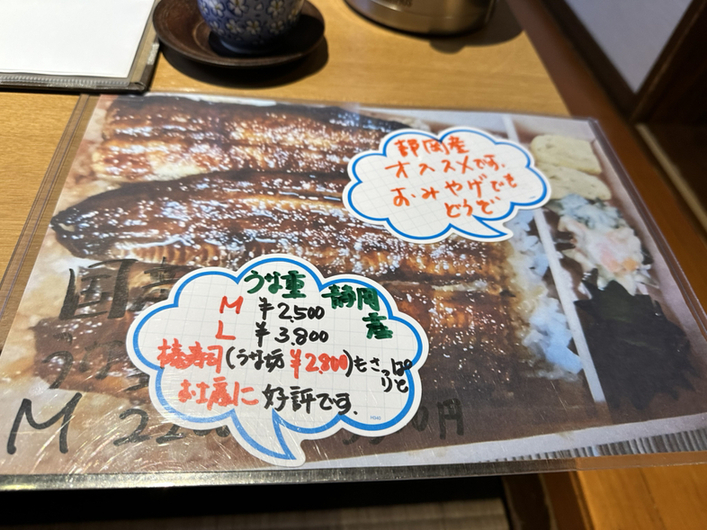 静岡産
オススメです。
おみやげでも
どうぞ
うな重 静岡産
M ¥2,500
L ¥3,800
棒寿司(うな坊 ¥2800)もさっぱりと
お土産に好評です.
国産
M 22
0円